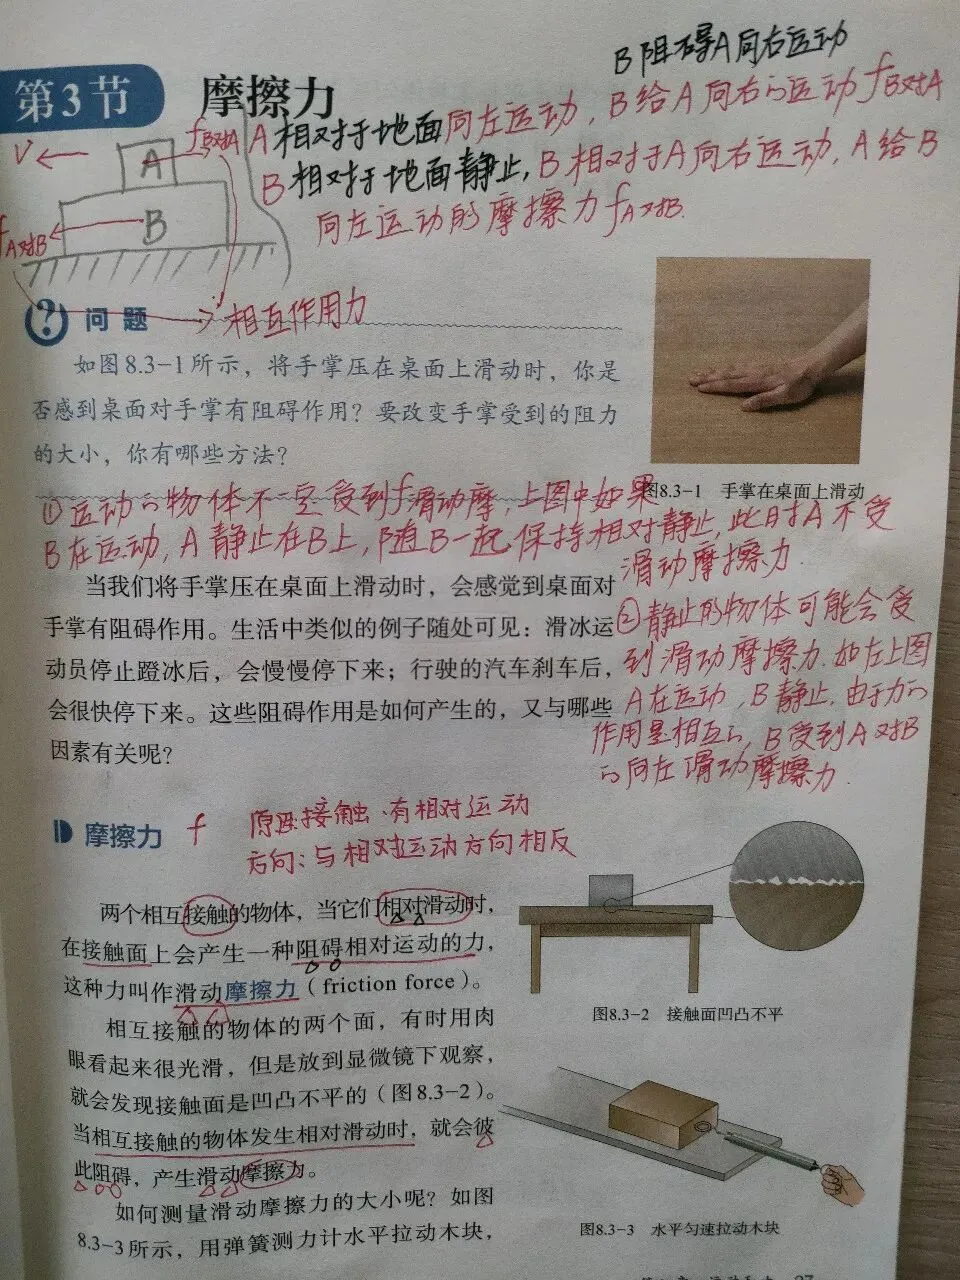 B阻碍A向右运动
第3节 摩擦力
A相对于地面向左运动，B给A向右的运动fB对A
B相对于地面静止，B相对于A向右运动，A给B
向左运动的摩擦力fA对B.
V
fB对A
A
B
fA对B
相互作用力
? 问题
如图8.3-1所示，将手掌压在桌面上滑动时，你是
否感到桌面对手掌有阻碍作用？要改变手掌受到的阻力
的大小，你有哪些方法？
图8.3-1 手掌在桌面上滑动
①运动的物体不一定受到f滑动摩，上图中如果
B在运动，A静止在B上，随B一起保持相对静止，此时A不受
滑动摩擦力.
当我们将手掌压在桌面上滑动时，会感觉到桌面对
手掌有阻碍作用。生活中类似的例子随处可见：滑冰运
动员停止蹬冰后，会慢慢停下来；行驶的汽车刹车后，
会很快停下来。这些阻碍作用是如何产生的，又与哪些
因素有关呢？
②静止的物体可能会受
到滑动摩擦力.如左上图
A在运动，B静止，由于力的
作用是相互的，B受到A对B
的向左滑动摩擦力.
摩擦力 f
原因：接触·有相对运动
方向：与相对运动方向相反
两个相互接触的物体，当它们相对滑动时，
在接触面上会产生一种阻碍相对运动的力，
这种力叫作滑动摩擦力（friction force）。
相互接触的物体的两个面，有时用肉
眼看起来很光滑，但是放到显微镜下观察，
就会发现接触面是凹凸不平的（图8.3-2）。
当相互接触的物体发生相对滑动时，就会彼
此阻碍，产生滑动摩擦力。
如何测量滑动摩擦力的大小呢？如图
8.3-3所示，用弹簧测力计水平拉动木块，
图8.3-2 接触面凹凸不平
图8.3-3 水平匀速拉动木块